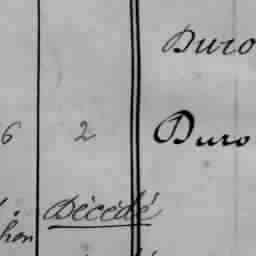 Duro
6 2 Duro
Décédé
hon